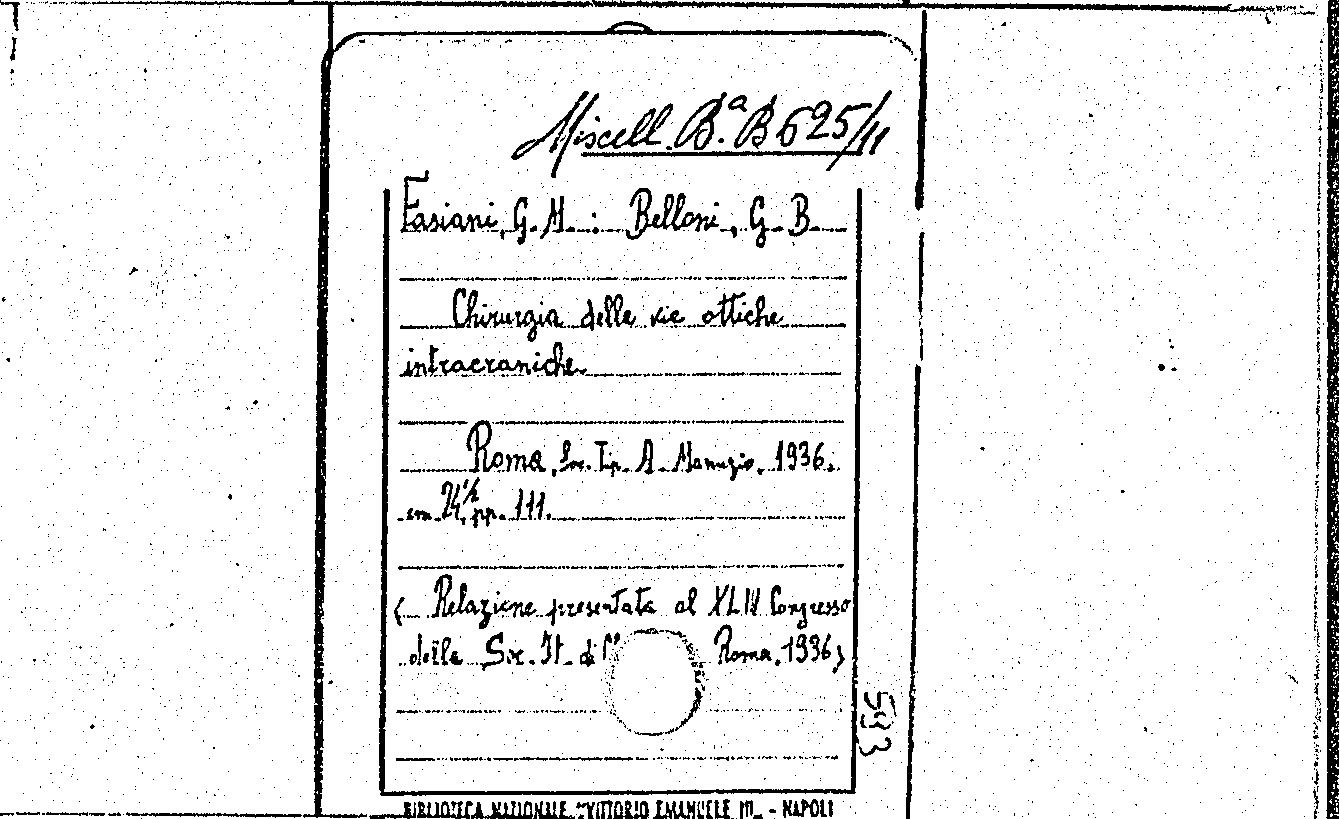 Miscell. B.ª B 625/11
Fasiani, G. M. : Belloni, G. B.
Chirurgia delle vie ottiche
intracraniche.
Roma, Soc. Tip. A. Manuzio, 1936.
cm. 24½, pp. 111.
(Relazione presentata al XLIII Congresso
della Soc. It. di Roma, 1936)
593
BIBLIOTECA NAZIONALE "VITTORIO EMANUELE III" - NAPOLI